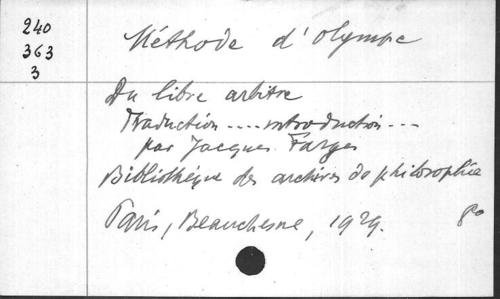 240
363
3
Méthode d'Olympe
Du libre arbitre
Traduction .... introduction ...
par Jacques Farges
Bibliothèque des archives de philosophie
Paris, Beauchesne, 1929. 8°